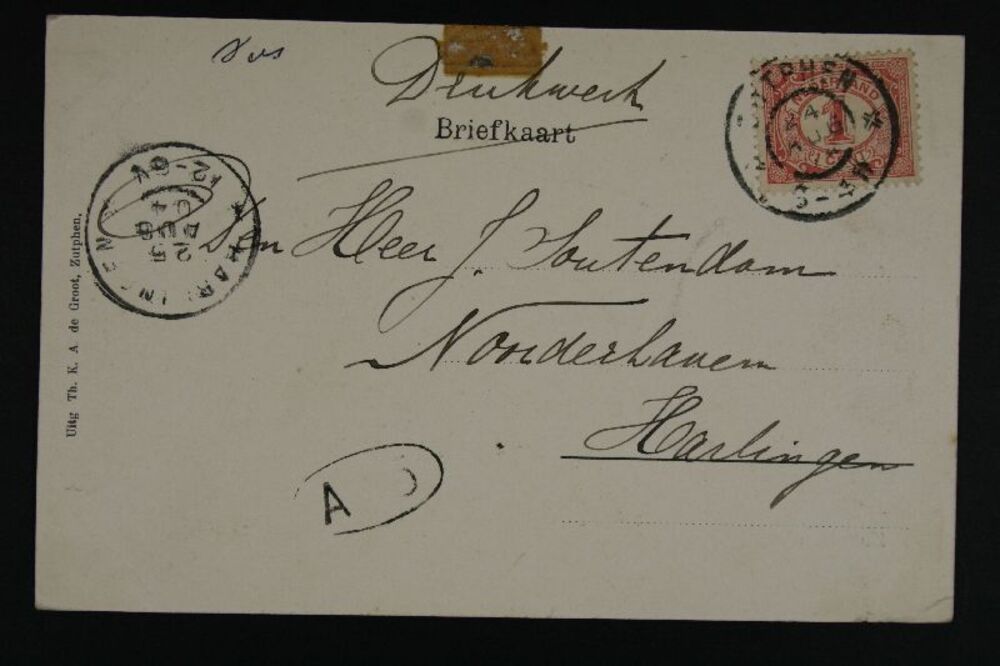 Drukwerk
Briefkaart
ZUTPHEN
NEDERLAND
1
HARLINGEN
12-6V
Den Heer J. Soutendam
Noorderhaven
Harlingen
A
Uitg Th. K. A de Groot, Zutphen,